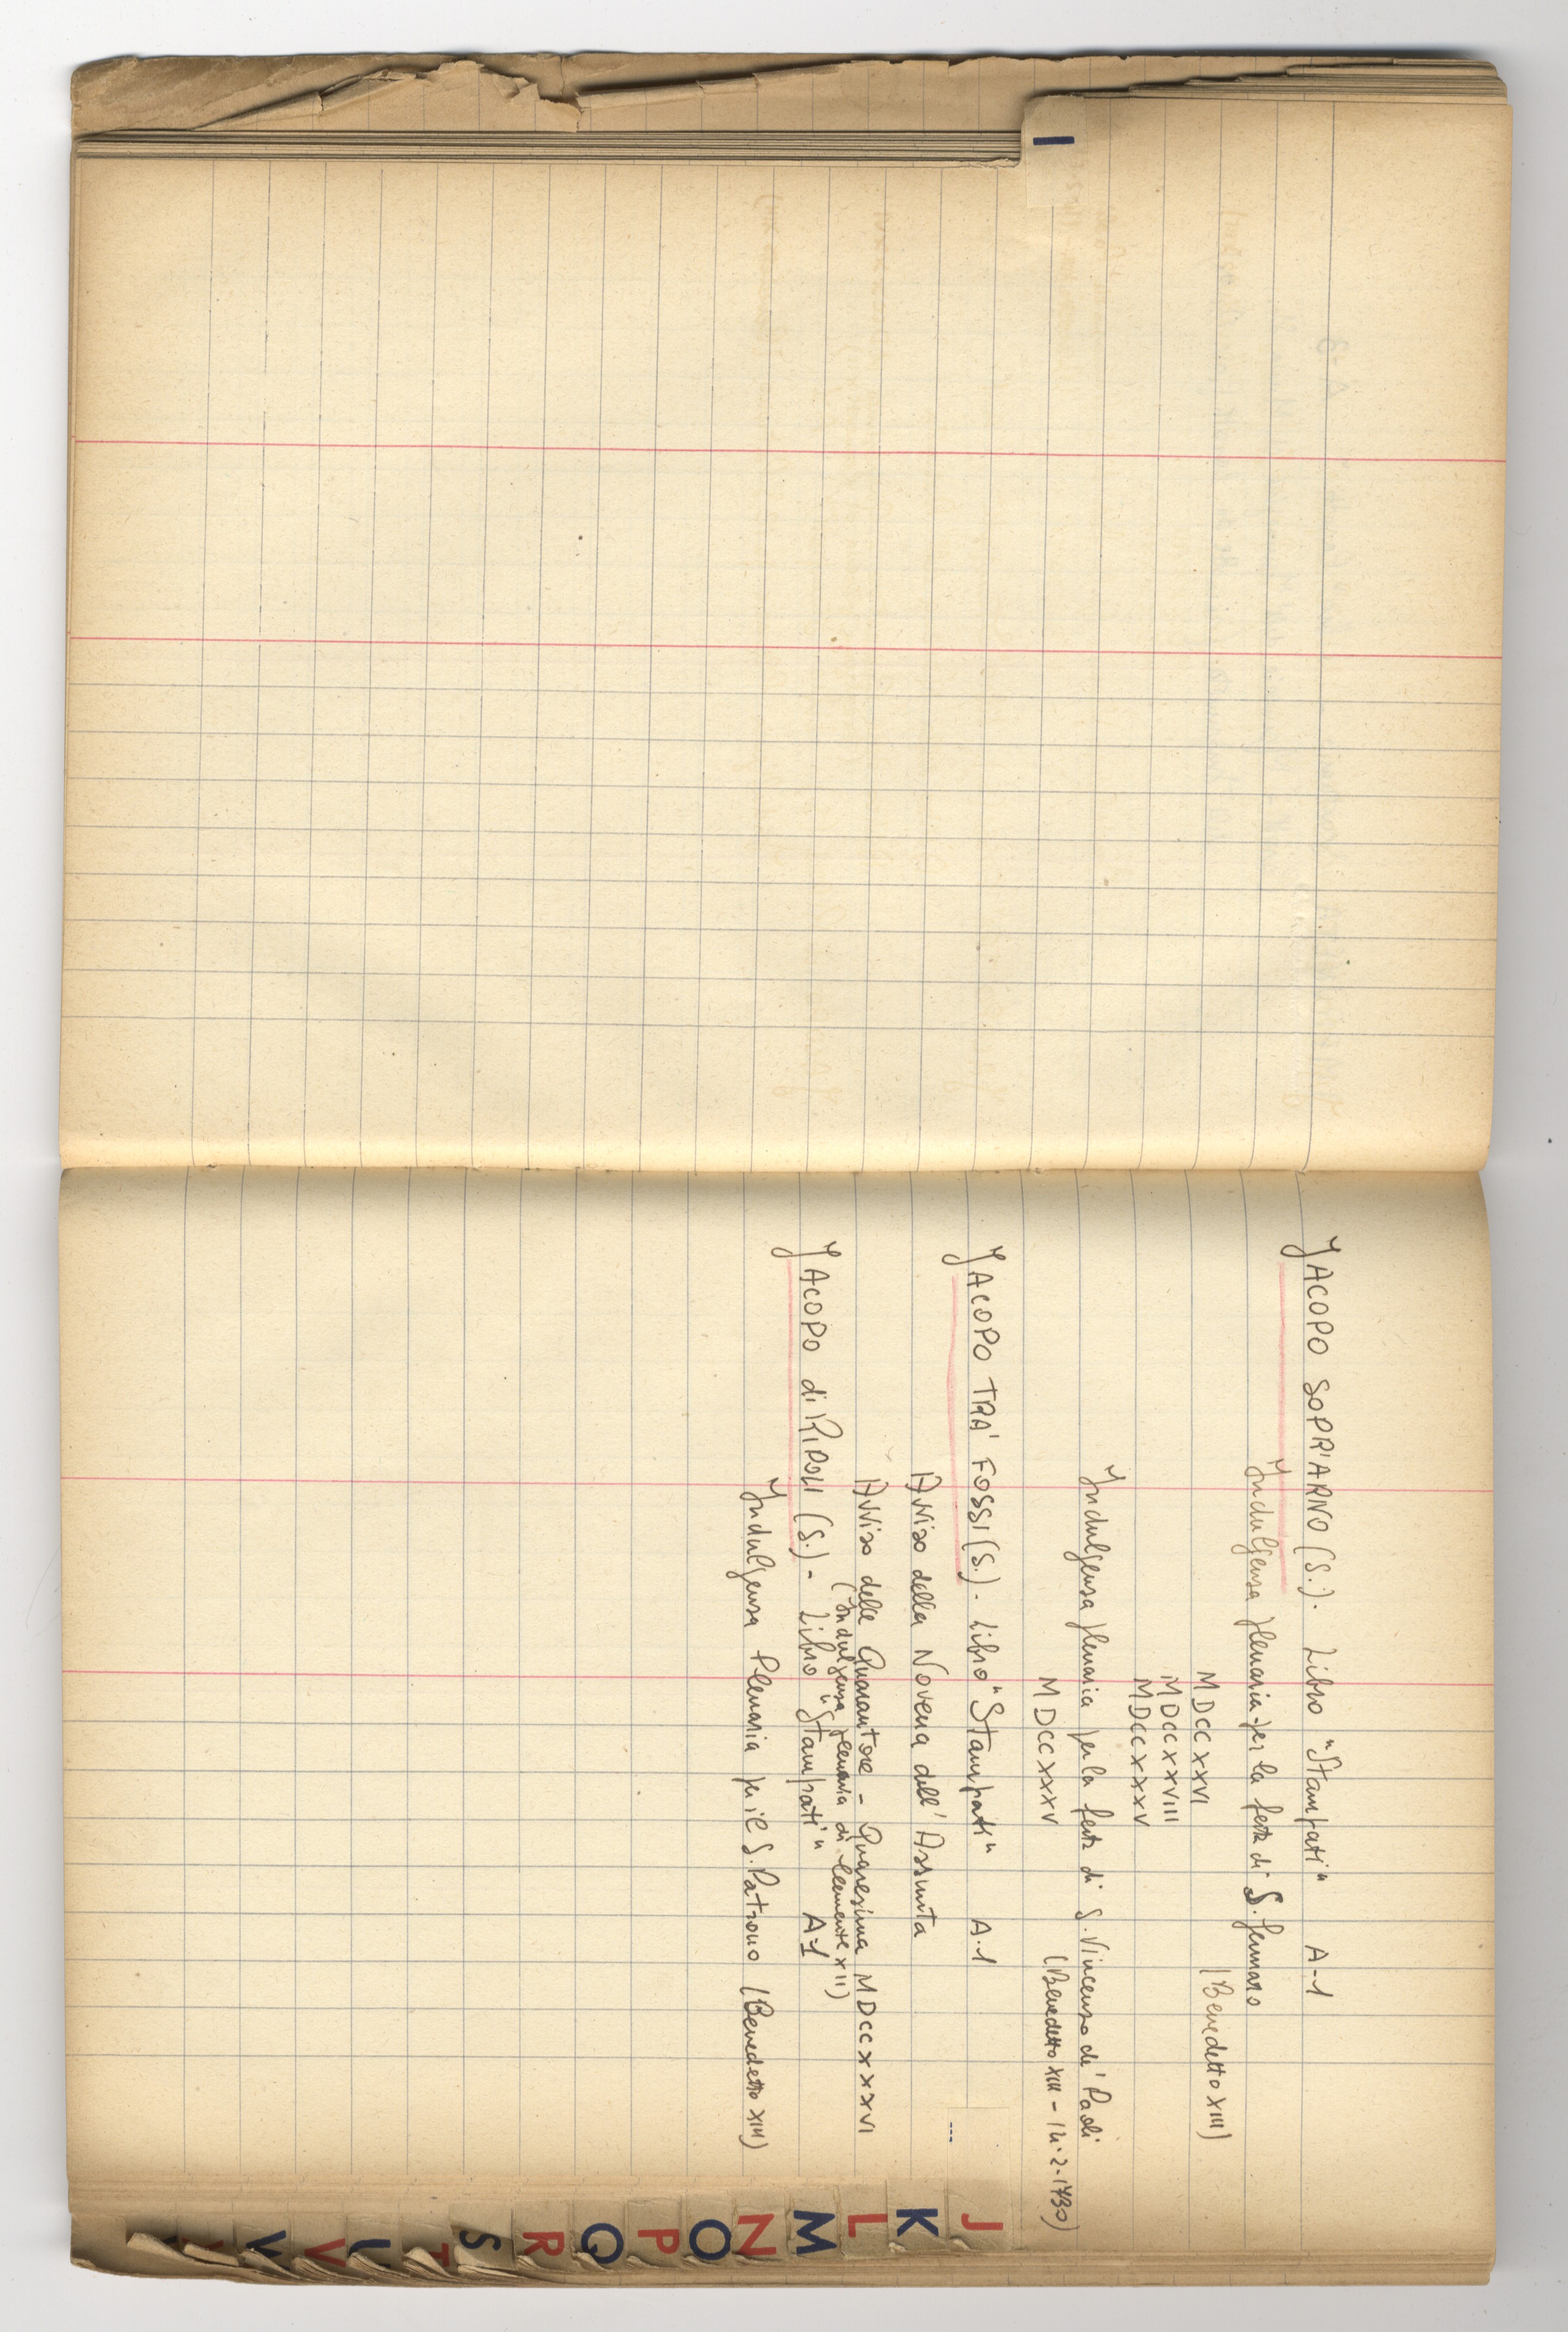 I
JACOPO SOPR'ARNO (S.). Libro "Stampati" A-1
Indulgenza plenaria per la festa di S. Gennaro
MDCCXXVI (Benedetto XIII)
MDCCXXVIII
MDCCXXXV
Indulgenza plenaria per la festa di S. Vincenzo de' Paoli
MDCCXXXV (Benedetto XIII - 14.2.1730)
JACOPO TRA' FOSSI (S.). Libro "Stampati" A.1
Avviso della Novena dell'Assunta
Avviso delle Quarantore - Quaresima MDCCXXXVI
(Indulgenza plenaria di Clemente XII)
JACOPO di RIPOLI (S.) - Libro "Stampati" A-1
Indulgenza Plenaria per il S. Patrono (Benedetto XIII)
J
K
L
M
N
O
P
Q
R
S
T
U
V